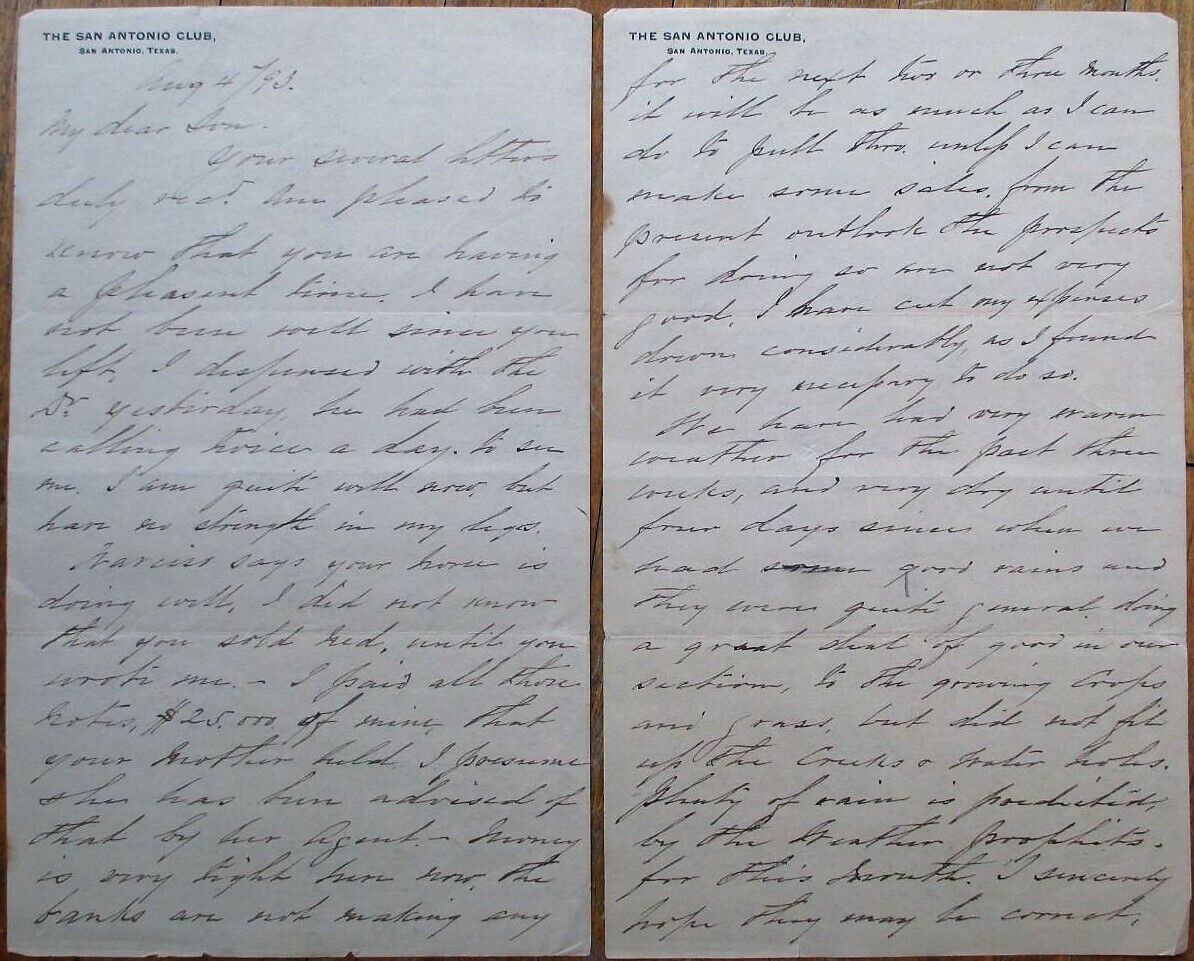 THE SAN ANTONIO CLUB,
SAN ANTONIO, TEXAS.
Aug 4/93.
My dear Son.
Your several letters
duly recd. Am pleased to
know that you are having
a pleasent time. I have
not been well since you
left, I dispensed with the
Dr. yesterday, he had been
calling twice a day. to see
me. I am quite well now, but
have no strength in my legs.
Narciss says your horse is
doing well, I did not know
that you sold Red, until you
wrote me. — I paid all those
notes, $25.000 of mine, that
your Mother held. I presume
she has been advised of
that by her Agent — Money
is very tight here now, the
banks are not making any
THE SAN ANTONIO CLUB,
SAN ANTONIO, TEXAS.
for the next two or three months.
it will be as much as I can
do to pull thro. unless I can
make some sales, from the
present outlook the prospects
for doing so are not very
good. I have cut my expenses
down considerably, as I found
it very necessary to do so.
We have had very warm
weather for the past three
weeks, and very dry until
four days since when we
had some good rains and
they were quite general doing
a great deal of good in our
section, to the growing Crops
and grass, but did not fill
up the Creeks & water holes.
Plenty of rain is predicted,
by the Weather prophits.
for this Month. I sincerely
hope they may be correct,